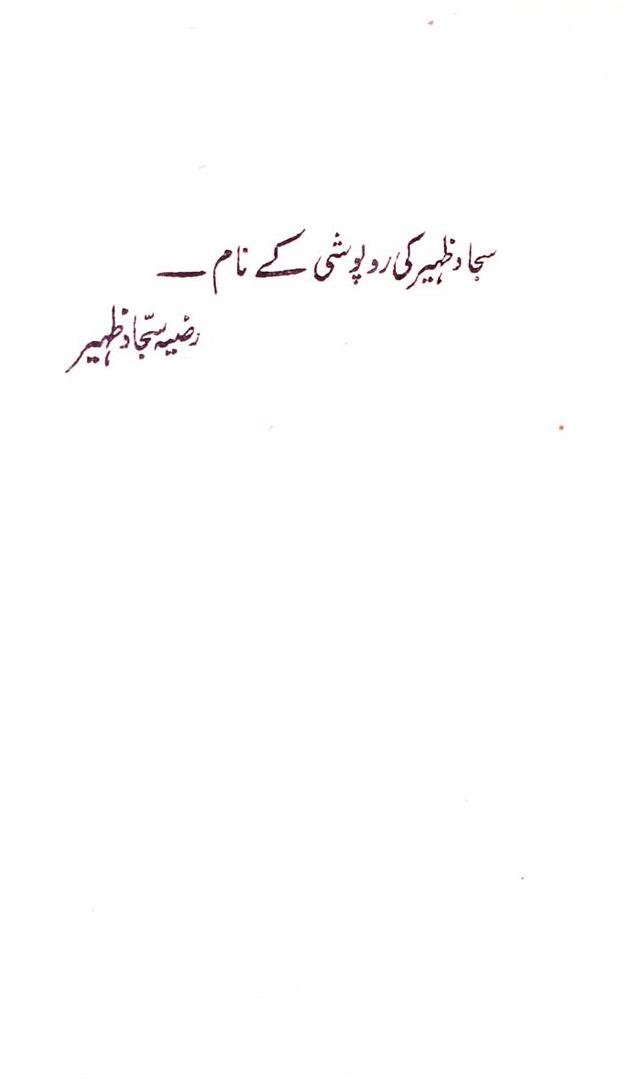 سجاد ظہیر کی روپوشی کے نام ــــ
رضیہ سجّاد ظہیر